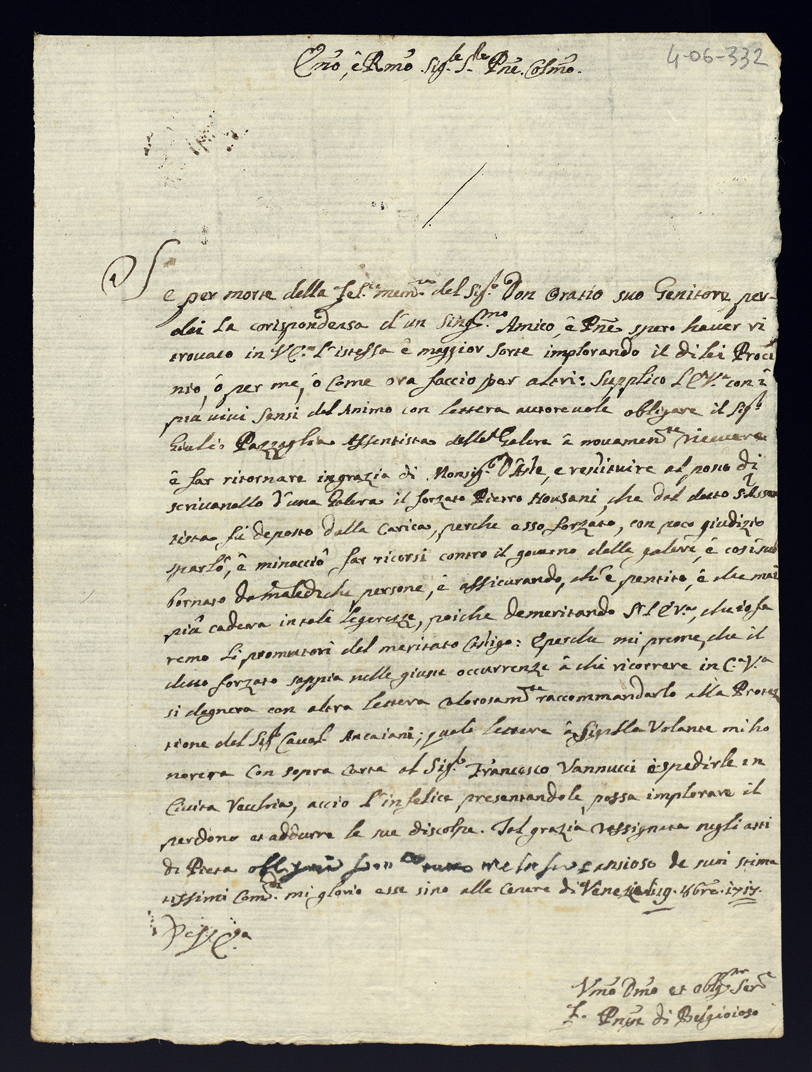 4-06-332
Emo, e Rmo Sig.le S.le Pne. Colmo.
Se per morte della fel.ce mem.ria del Sig.r Don Oratio suo Genitore per-
dei la corispondenza d'un Sing.mo Amico, è Pne spero haver ri
trovato in V.E. l'istessa è maggior sorte implorando il di lei
ò per me, ò come ora faccio per altri: Supplico l'E.V. con i
più vivi sensi del Animo con lettera autorevole obligare il Sig.r
Giulio Pazzaglia Assentista delle Galere à novamen.te ricevere
è far ritornare in grazia di Monsig.r D'Aste, e restituire al posto di
scrivanello d'una Galera il forzato Pietro Housani, che dal detto
tista fù deposto dalla Carica, perche esso forzato, con poco giudizio
sparlò, è minacciò far ricorsi contro il governo delle galere, è cosi
bornato da malediche persone, è assicurando, ch'è pentito, è che mai
più caderà in tale legerezze, poiche demeritando l'E.V.a, che io sa
remo li promutori del meritato Castigo: E perche mi preme, che il
detto forzato sappia nelle giuste occurrenze à chi ricorrere in C.a V.a
si degnera con altra lettera valorosam.te raccommandarlo alla Protez
tione del Sig.r Caval.r Ancaiani; quale lettere à Sigilla Volante mi ho
norera con sopra carta al Sig.r Francesco Vannucci è spedirle in
Civita Vecchia, accio l'infelice presentandole, possa implorare il
perdono et addurre le sue discolpe. Tal grazia negli atti
di Pieta ansioso de suoi stima
tissimi Com.di mi glorio esse sino alle Cenere di Venezia li 9. 1717.
Vmo Dmo et oblig.mo Ser.re
Pnpe di Belgioioso